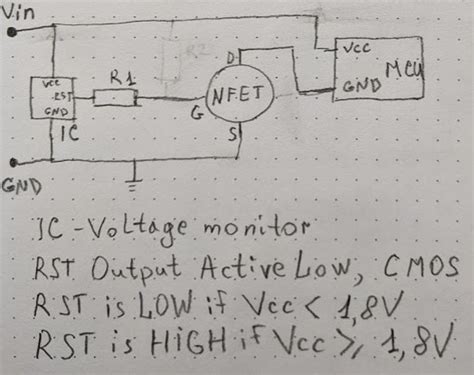 Vin
R2
VCC
MCU
GND
R1
D
VCC
RST
GND
IC
NFET
G
S
GND
IC - Voltage monitor
RST Output Active Low, CMOS
RST is LOW if Vcc < 1,8V
RST is HIGH if Vcc ⩾ 1,8V